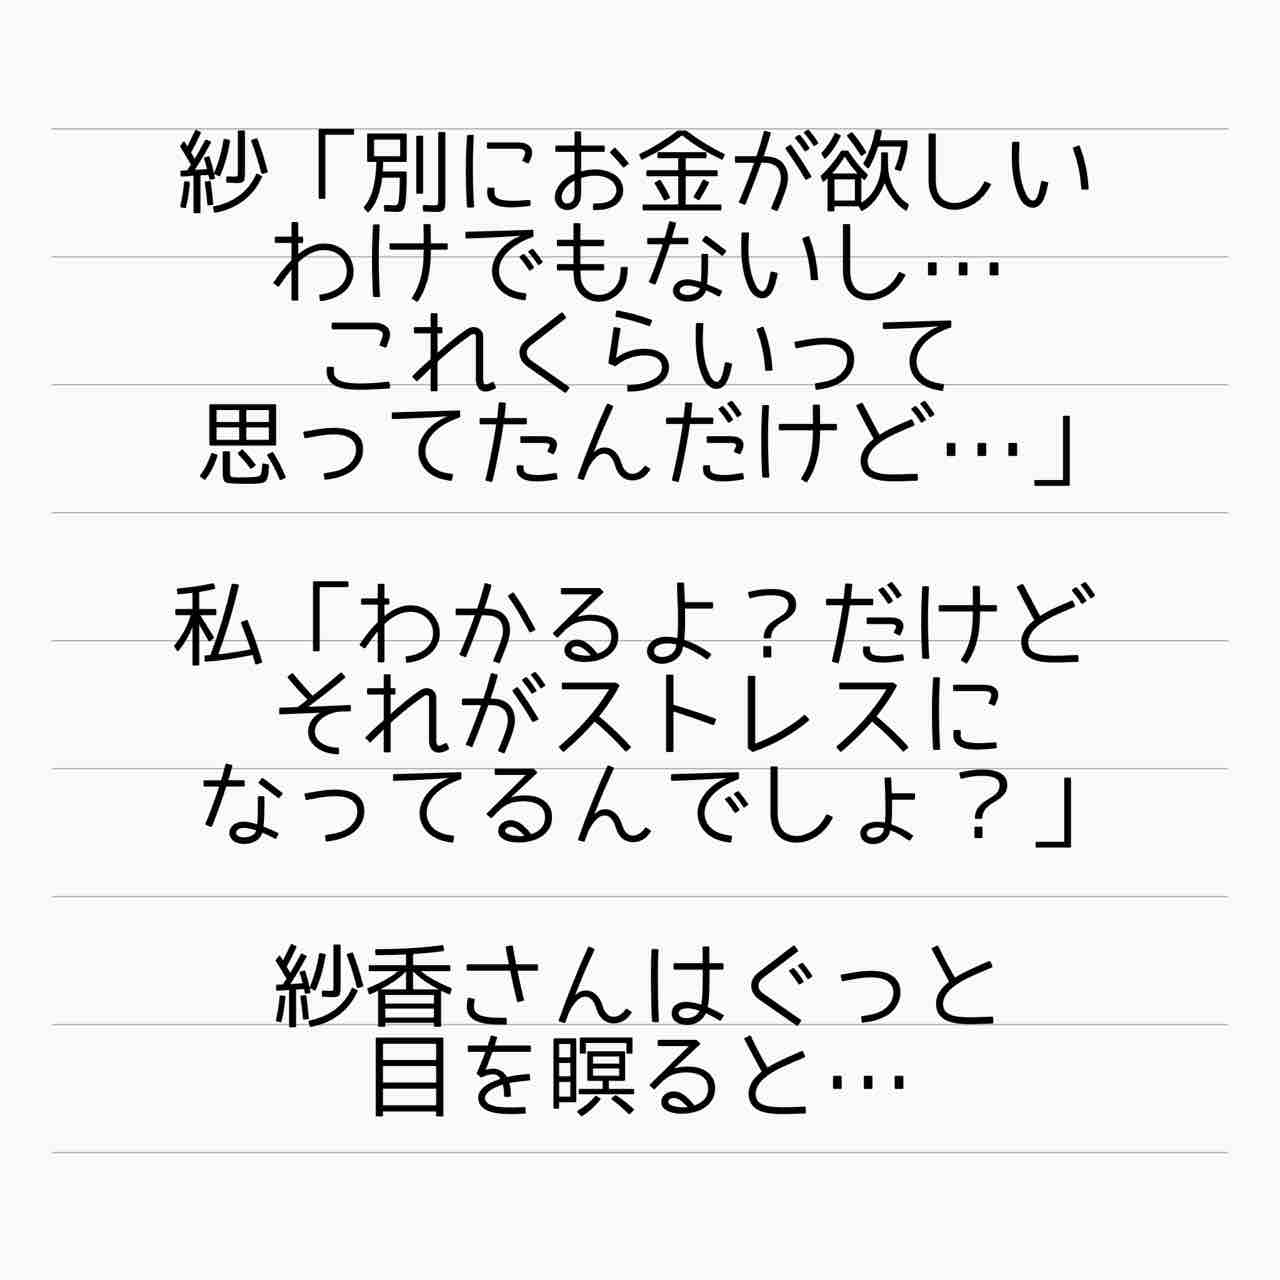 紗「別にお金が欲しい
わけでもないし…
これくらいって
思ってたんだけど…」
私「わかるよ？だけど
それがストレスに
なってるんでしょ？」
紗香さんはぐっと
目を瞑ると…